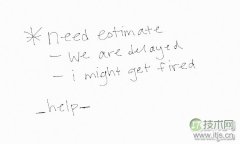 * need estimate
- We are delayed
- i might get fired
_help_
技术网
www.itjs.cn